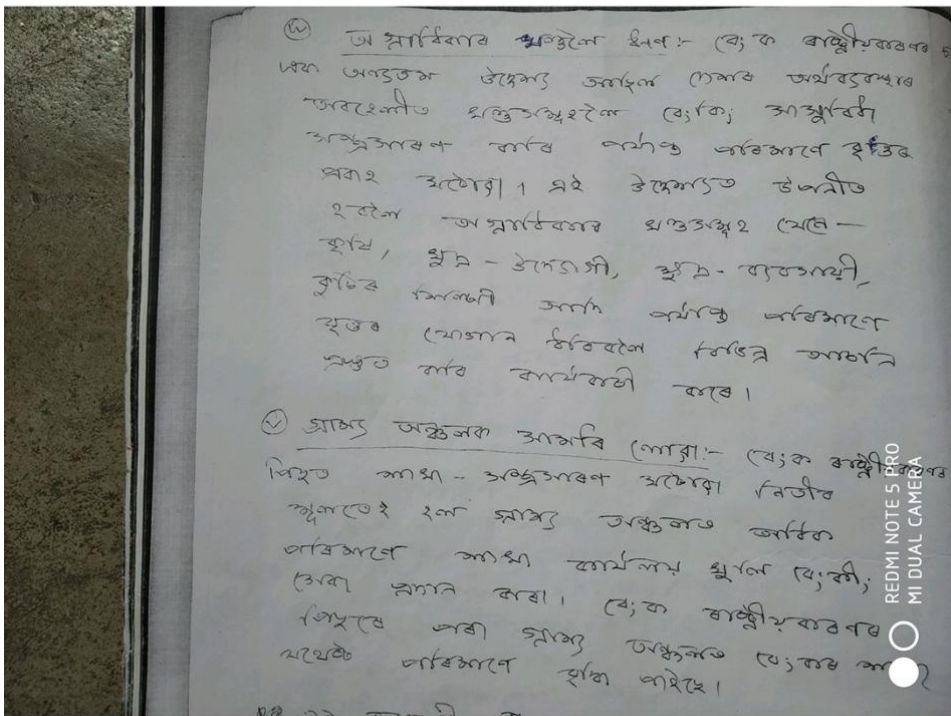 (iv) অগ্ৰাধিকাৰ খণ্ডলৈ ঋণ :- বে;ক ৰাষ্ট্ৰীয়কৰণৰ
এক অন্যতম উদ্দেশ্য আছিল দেশৰ অৰ্থব্যৱস্থাৰ
অৱহেলীত খণ্ডসমূহলৈ বে;কি;
সম্প্ৰসাৰণ কৰি পৰ্যাপ্ত পৰিমাণে ঋণৰ
প্ৰবাহ ঘটোৱা। এই উদ্দেশ্যত উপনীত
হবলৈ অগ্ৰাধিকাৰ খণ্ডসমূহ যেনে —
কৃষি, ক্ষুদ্ৰ - উদ্যোগী, ক্ষুদ্ৰ - ব্যৱসায়ী,
কুটিৰ শিল্পী আদি পৰ্যাপ্ত পৰিমাণে
ঋণৰ যোগান ধৰিবলৈ বিভিন্ন আচনি
প্ৰস্তুত কৰি কাৰ্যকৰী কৰে।
(v) গ্ৰাম্য অঞ্চলক সামৰি লোৱা :- বে;ক ৰাষ্ট্ৰীয়কৰণৰ
পিছত শাখা - সম্প্ৰসাৰণ ঘটোৱা নিতীৰ
মূলতেই হল গ্ৰাম্য অঞ্চলত অধিক
পৰিমাণে শাখা কাৰ্যলয় খুলি বে;কী;
সেৱা প্ৰদান কৰা। বে;ক ৰাষ্ট্ৰীয়কৰণৰ
পিছৰে পৰা গ্ৰাম্য অঞ্চলত বে;কৰ
যথেষ্ট পৰিমাণে বৃদ্ধি পাইছে।
REDMI NOTE 5 PRO
MI DUAL CAMERA